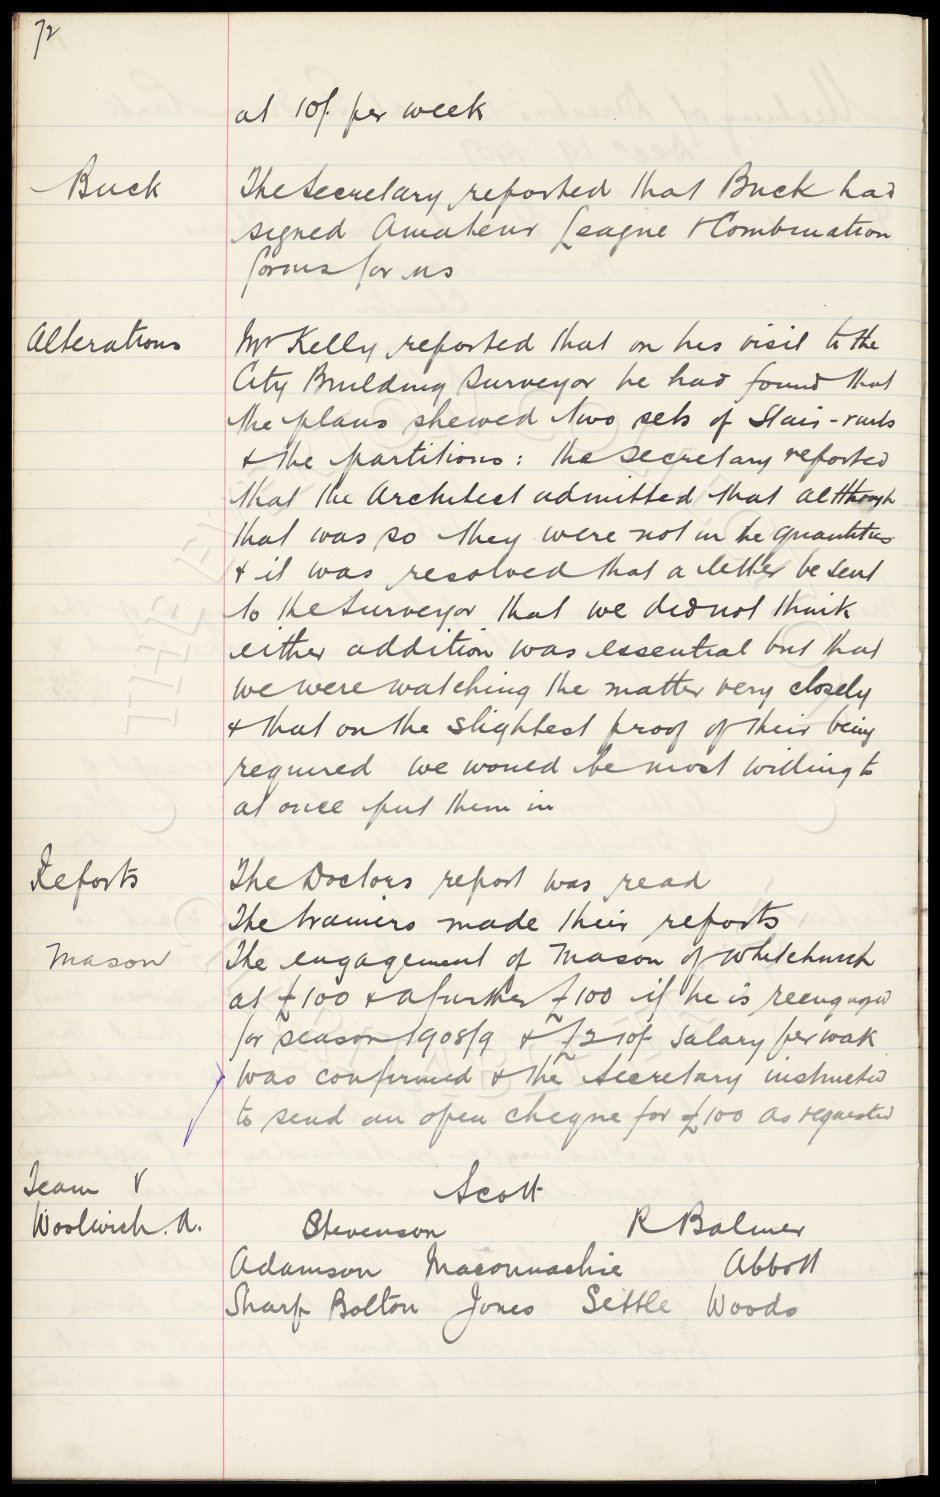 72
at 10/. per week
Buck
The Secretary reported that Buck had
signed Amateur League & Combination
forms for us
Alterations
Mr Kelly reported that on his visit to the
City Building Surveyor he had found that
the plans shewed two sets of Stair-rails
& the partitions: the Secretary reported
that the Architect admitted that although
that was so they were not in the quantities
& it was resolved that a letter be sent
to the Surveyor that we did not think
either addition was essential but that
we were watching the matter very closely
& that on the slightest proof of their being
required we would be most willing to
at once put them in
Reports
The Doctors report was read
The trainers made their reports
Mason
The engagement of Mason of Whitchurch
at £100 & a further £100 if he is reengaged
for season 1908/9 & £2 10/. salary per week
was confirmed & the Secretary instructed
to send an open cheque for £100 as requested
Team V
Woolwich. A.
Scott
Stevenson R Balmer
Adamson Maconnachie Abbott
Sharp Bolton Jones Settle Woods